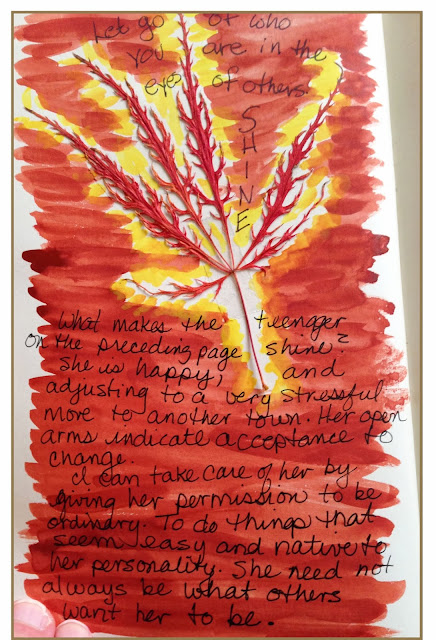 Let go of who
you are in the
eyes of others.
SHINE
What makes the teenager
on the preceding page shine?
She is happy, and
adjusting to a very stressful
move to another town. Her open
arms indicate acceptance to
change.
I can take care of her by
giving her permission to be
ordinary. To do things that
seem easy and native to
her personality. She need not
always be what others
want her to be.